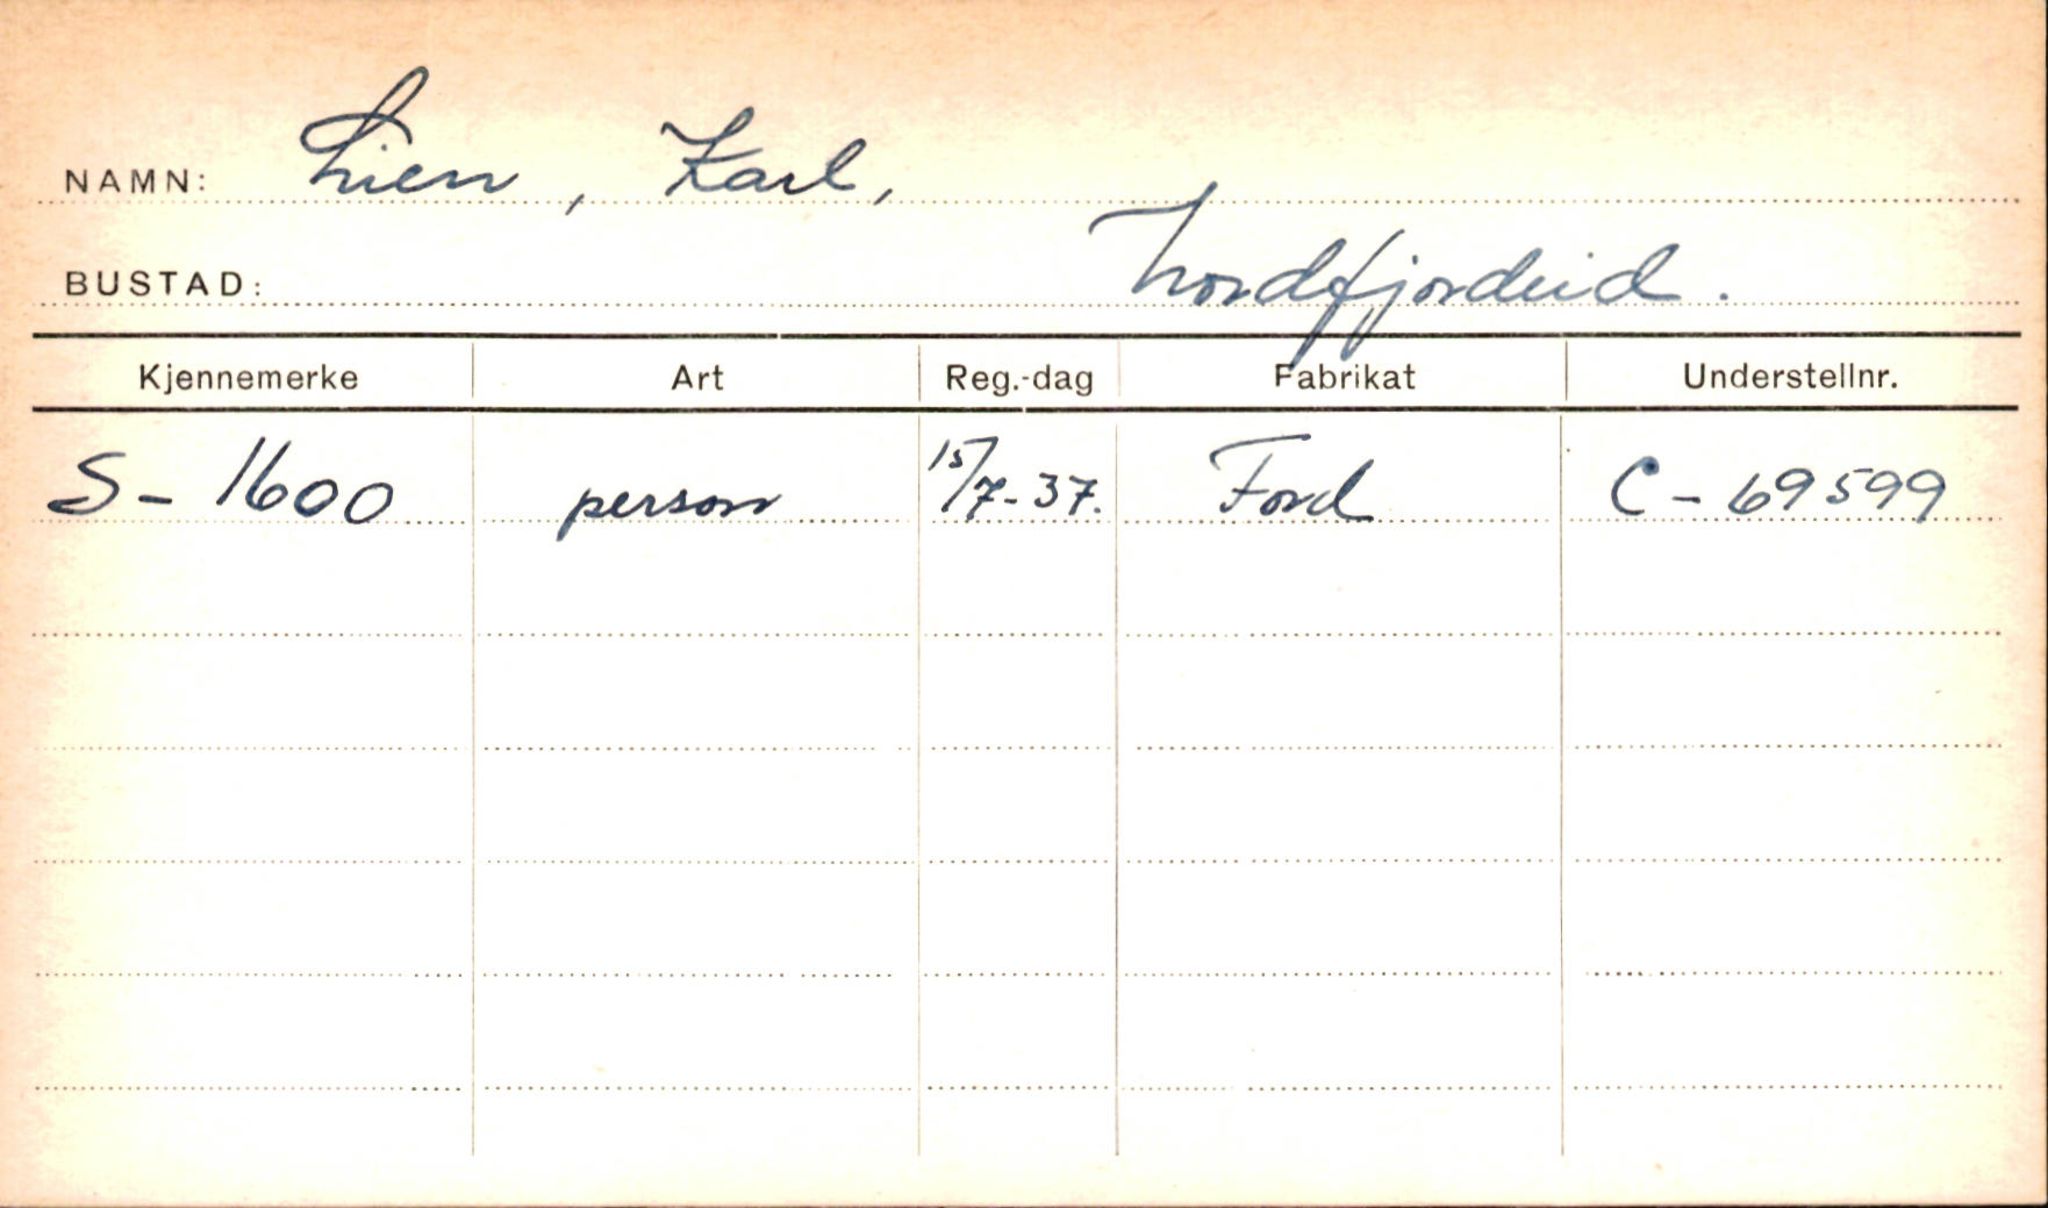 NAMN: Lien, Karl,
BUSTAD: Nordfjordeid.
Kjennemerke Art Reg.-dag Fabrikat Understellnr.
S - 1600 person 15/7-37. Ford C - 69599